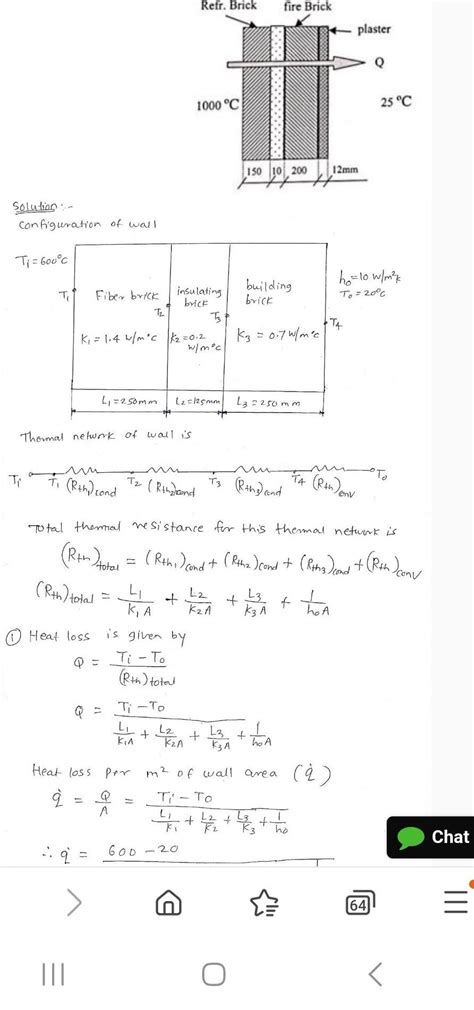 Refr. Brick fire Brick
plaster
Q
1000 °C
25 °C
150 10 200 12mm
Solution:-
Configuration of wall
Ti=600°C
T1
Fiber brick
T2
insulating
brick
T3
building
brick
T4
ho=10 W/m²k
To=20°C
K1=1.4 W/m°C
K2=0.2
W/m°C
K3 = 0.7W/m°C
L1=250mm L2=125mm L3=250mm
Thermal network of wall is
Ti T1 (Rth1)cond T2 (Rth2)cond T3 (Rth3)cond T4 (Rth)conv To
Total thermal resistance for this thermal network is
(Rth)total = (Rth1)cond + (Rth2)cond + (Rth3)cond + (Rth)conv
(Rth)total = L1/K1A + L2/K2A + L3/K3A + 1/hoA
① Heat loss is given by
Q = Ti-To/(Rth)total
Q = Ti-To/(L1/K1A + L2/K2A + L3/K3A + 1/hoA)
Heat loss per m² of wall area (q̇)
q̇ = Q/A = Ti-To/(L1/K1 + L2/K2 + L3/K3 + 1/ho)
∴ q̇ = 600-20
Chat
64